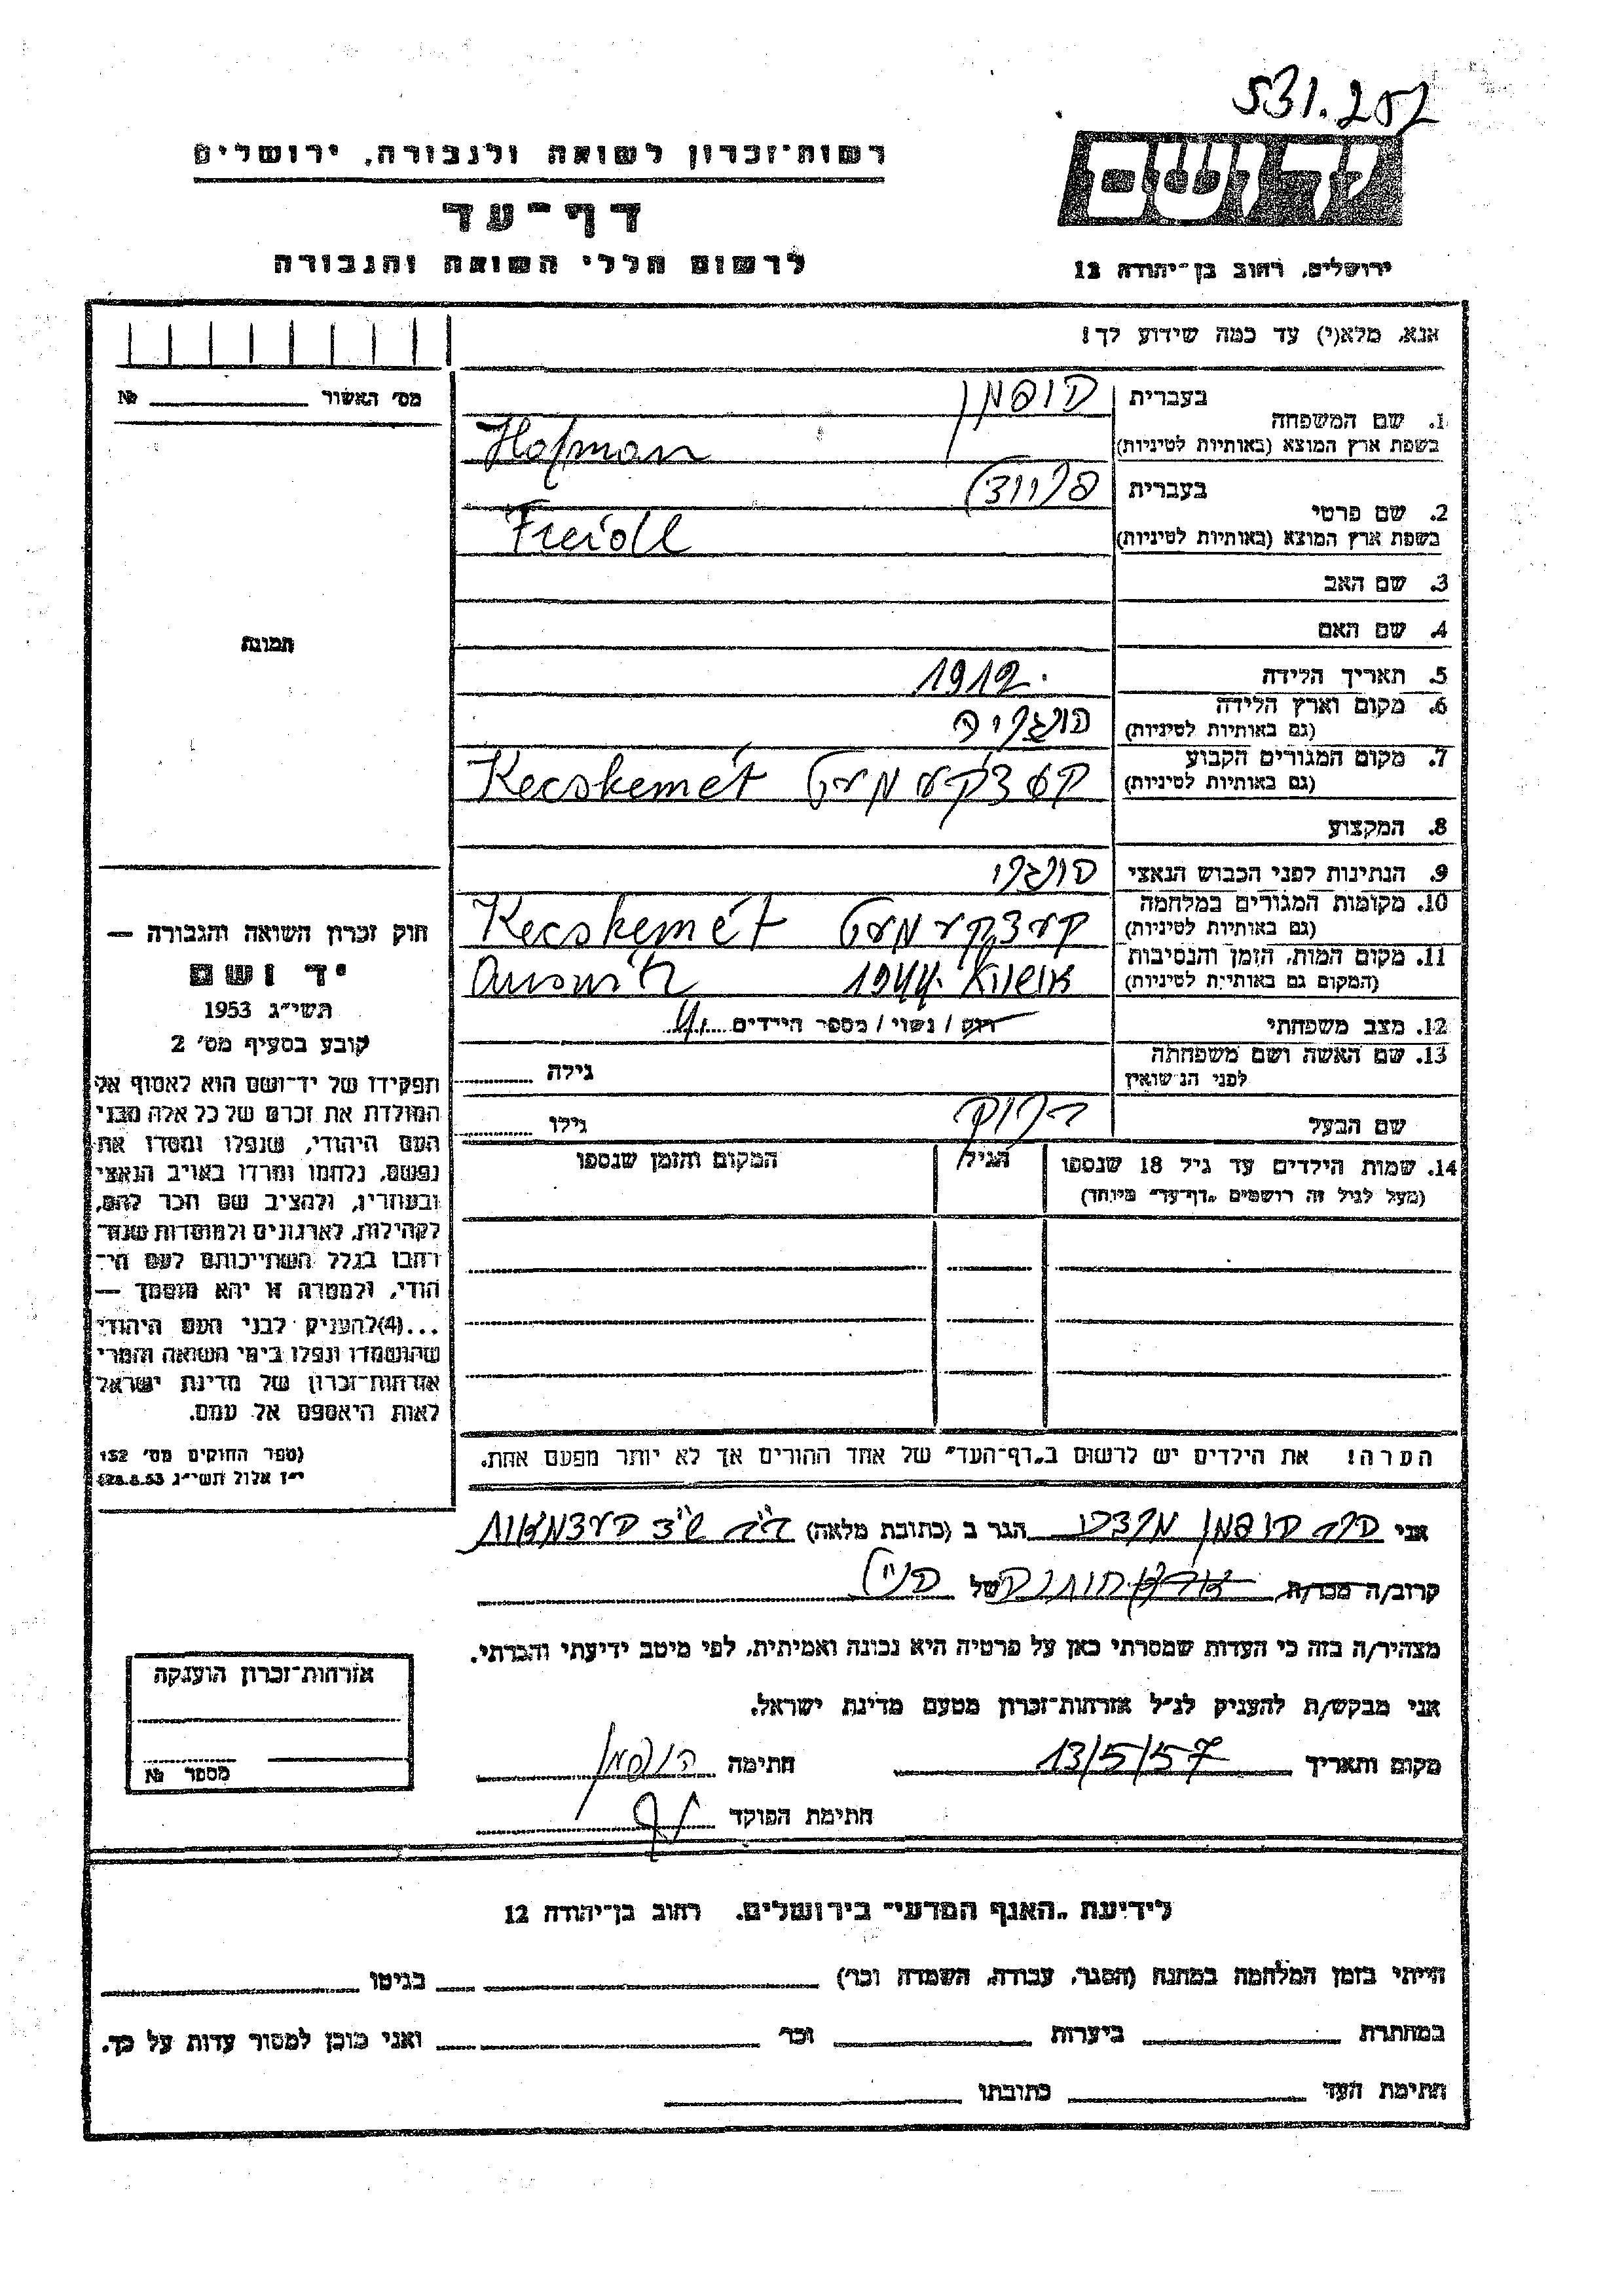 531.202
יד ושם
רשות־זכרון לשואה ולגבורה, ירושלים
דף־עד
לרשום חללי השואה והגבורה
ירושלים, רחוב בן־יהודה 12
אנא, מלא(י) עד כמה שידוע לך!
מס׳ האשור № 
1. שם המשפחה
בעברית הופמן
בשפת ארץ המוצא (באותיות לטיניות) Hofman
2. שם פרטי
בעברית פריידל
בשפת ארץ המוצא (באותיות לטיניות) Freidl
3. שם האב
4. שם האם
תמונה
5. תאריך הלידה 1912.
6. מקום וארץ הלידה הונגריה
(גם באותיות לטיניות)
7. מקום המגורים הקבוע קעצקעמעט Kecskemét
(גם באותיות לטיניות)
8. המקצוע
9. הנתינות לפני הכבוש הנאצי הונגרי
10. מקומות המגורים במלחמה קעצקעמעט Kecskemét
(גם באותיות לטיניות)
11. מקום המות, הזמן והנסיבות 1944.
(המקום גם באותיית לטיניות)
12. מצב משפחתי רוק / נשוי / מספר הילדים
13. שם האשה ושם משפחתה גילה
לפני הנשואין
שם הבעל גילו
14. שמות הילדים עד גיל 18 שנספו הגיל המקום והזמן שנספו
(מעל לגיל זה רושמים „דף־עד״ מיוחד)
חוק זכרון השואה והגבורה —
יד ושם
תשי״ג 1953
קובע בסעיף מס׳ 2
תפקידו של יד־ושם הוא לאסוף אל
המולדת את זכרם של כל אלה מבני
העם היהודי, שנפלו ומסרו את
נפשם, נלחמו ומרדו באויב הנאצי
ובעוזריו, ולהציב שם וזכר להם,
לקהילות, לארגונים ולמוסדות שנח־
רבו בגלל השתייכותם לעם הי־
הודי, ולמטרה זו יהא מוסמך —
...(4)להעניק לבני העם היהודי
שהושמדו ונפלו בימי השואה והמרי
אזרחות־זכרון של מדינת ישראל
לאות היאספם אל עמם.
(ספר החוקים מס׳ 132
י״ז אלול תשי״ג 28.8.53)
הערה! את הילדים יש לרשום ב„דף־העד״ של אחד ההורים אך לא יותר מפעם אחת.
אני הופמן הגר ב (כתובת מלאה)
קרוב/ה מכר/ה של
מצהיר/ה בזה כי העדות שמסרתי כאן על פרטיה היא נכונה ואמיתית, לפי מיטב ידיעתי והכרתי.
אני מבקש/ת להעניק לנ״ל אזרחות־זכרון מטעם מדינת ישראל.
מקום ותאריך 13/5/57 חתימה הופמן
חתימת הפוקד
אזרחות־זכרון הוענקה
מספר №
לידיעת „האגף המדעי״ בירושלים, רחוב בן־יהודה 12
הייתי בזמן המלחמה במחנה (הסגר, עבודה, השמדה וכו׳) בגיטו
במחתרת ביערות וכו׳ ואני מוכן למסור עדות על כך.
חתימת העד כתובתו